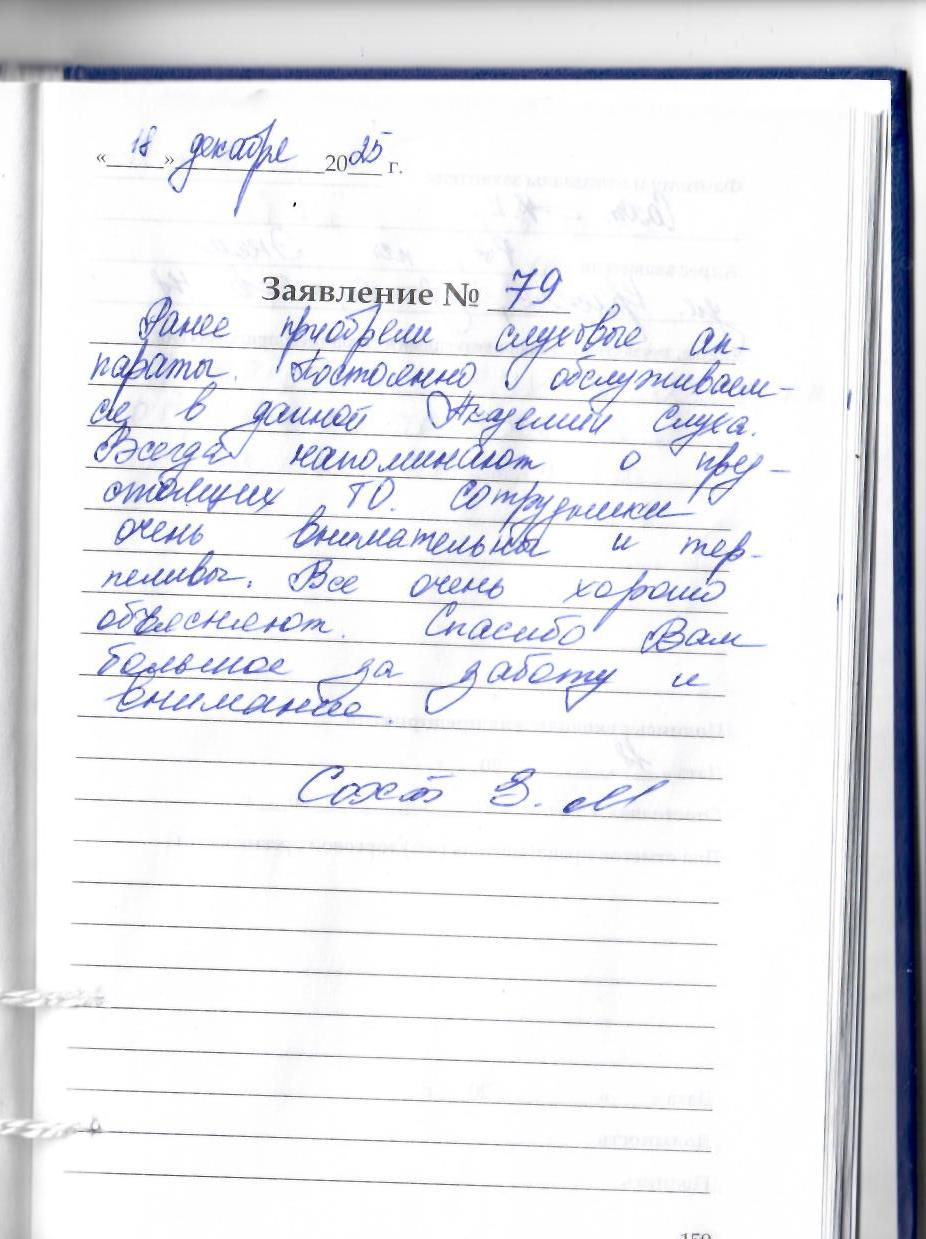 «18» декабря 2025 г.
Заявление № 79
Ранее приобрели слуховые ап-
параты. Постоянно обслуживаем-
ся в данной Академии Слуха.
Всегда напоминают о пред-
стоящих ТО. Сотрудники
очень внимательны и тер-
пеливы. Все очень хорошо
объясняют. Спасибо Вам
большое за заботу и
внимание.
З. М